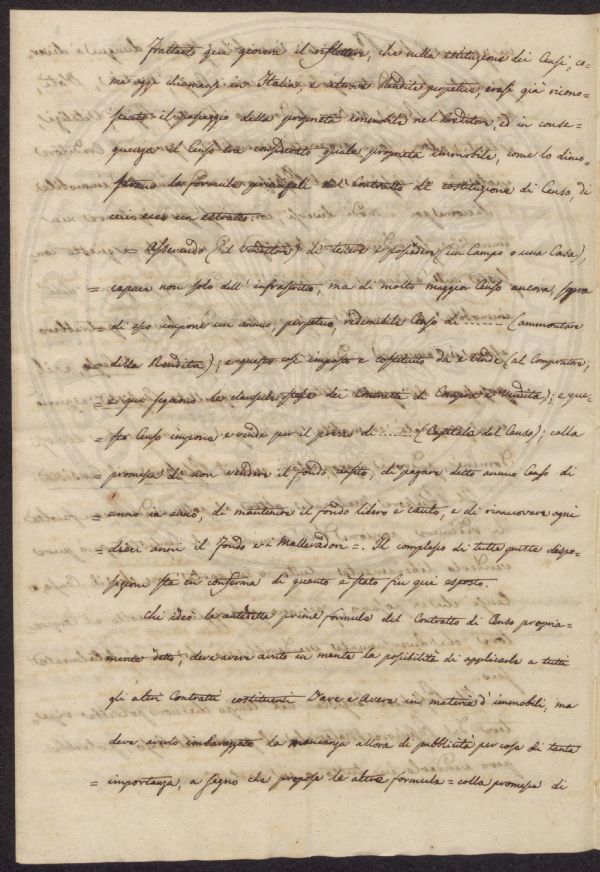 Frattanto qui giova il riflettere, che nella costituzione dei Censi, co-
me oggi chiamasi in Italia, e altrove Rendite perpetue, erasi già ricono-
sciuto il passaggio della proprietà immobile nel Creditore, ed in conse-
guenza il Censo era considerato quale proprietà immobile, come lo dimo-
strano le Formule principali del Contratto di costituzione di Censo, di
cui ecco un estratto.
= Asserendo (il Venditore) di tenere e possedere (un Campo o una Casa),
= capace non solo dell'infrascritto, ma di molto maggior Censo ancora, sopra
= di esso impone un annuo, perpetuo redimibile Censo di ........ (ammontare
= della Rendita); e questo così imposto e costituito da e vende (al Compratore,
= e qui seguono le clausule stesse dei Contratti di Compra e Vendita); e que-
= sto Censo impone e vende per il prezzo di ........ (Capitale del Censo); colla
= promessa di non vendere il fondo censito, di pagare detto annuo Censo di
= anno in anno, di mantenere il fondo libero e cauto, e di rinnovare ogni
= dieci anni il Fondo e i Mallevadori =. Il complesso di tutta questa dispo-
sizione sta in conferma di quanto è stato fin qui esposto.
Chi ideò le anzidette prime formule del Contratto di Censo propria-
mente detto, deve avere avuto in mente la possibilità di applicarle a tutti
gli altri Contratti costituenti Dare e Avere in materia d'immobili, ma
deve averlo imbarazzato la mancanza allora di pubblicità per cosa di tanta
= importanza, a segno che propose le altre formula = colla promessa di